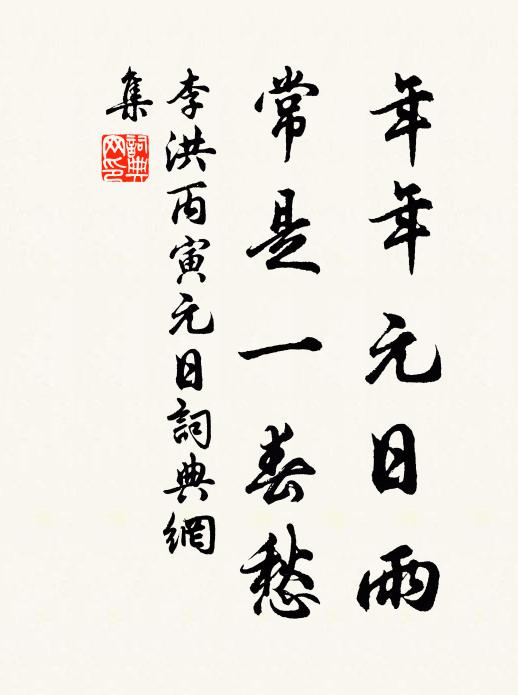 年年元日雨
常是一春愁
李洪丙寅元日詞典網
集
詞典
网印